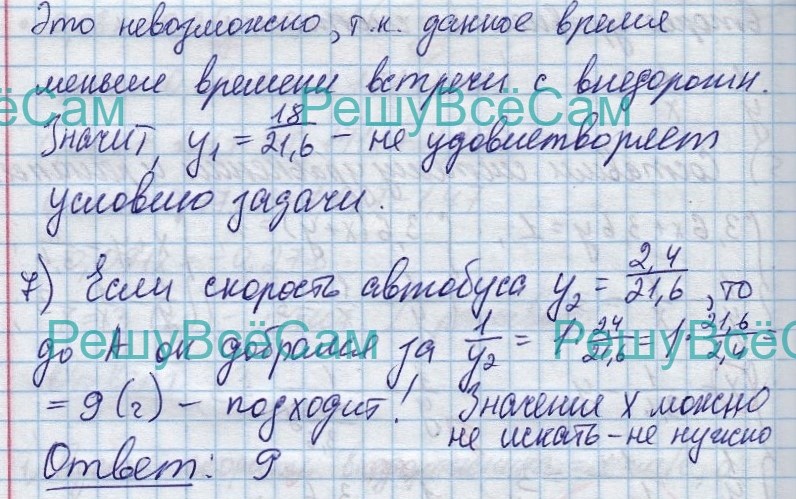 Это невозможно, т.к. данное время
меньше времени встречи с внедорожн.
РешуВсёСам РешуВсёСам
Значит, y₁ = 18/21,6 – не удовлетворяет
условию задачи.
7) Если скорость автобуса y₂ = 2,4/21,6, то
РешуВсёСам РешуВсёСам
до А он добрался за 1/y₂ = 1 : 2,4/21,6 = 1 · 21,6/2,4 =
= 9 (г) – подходит! Значение x можно
не искать – не нужно
Ответ: 9